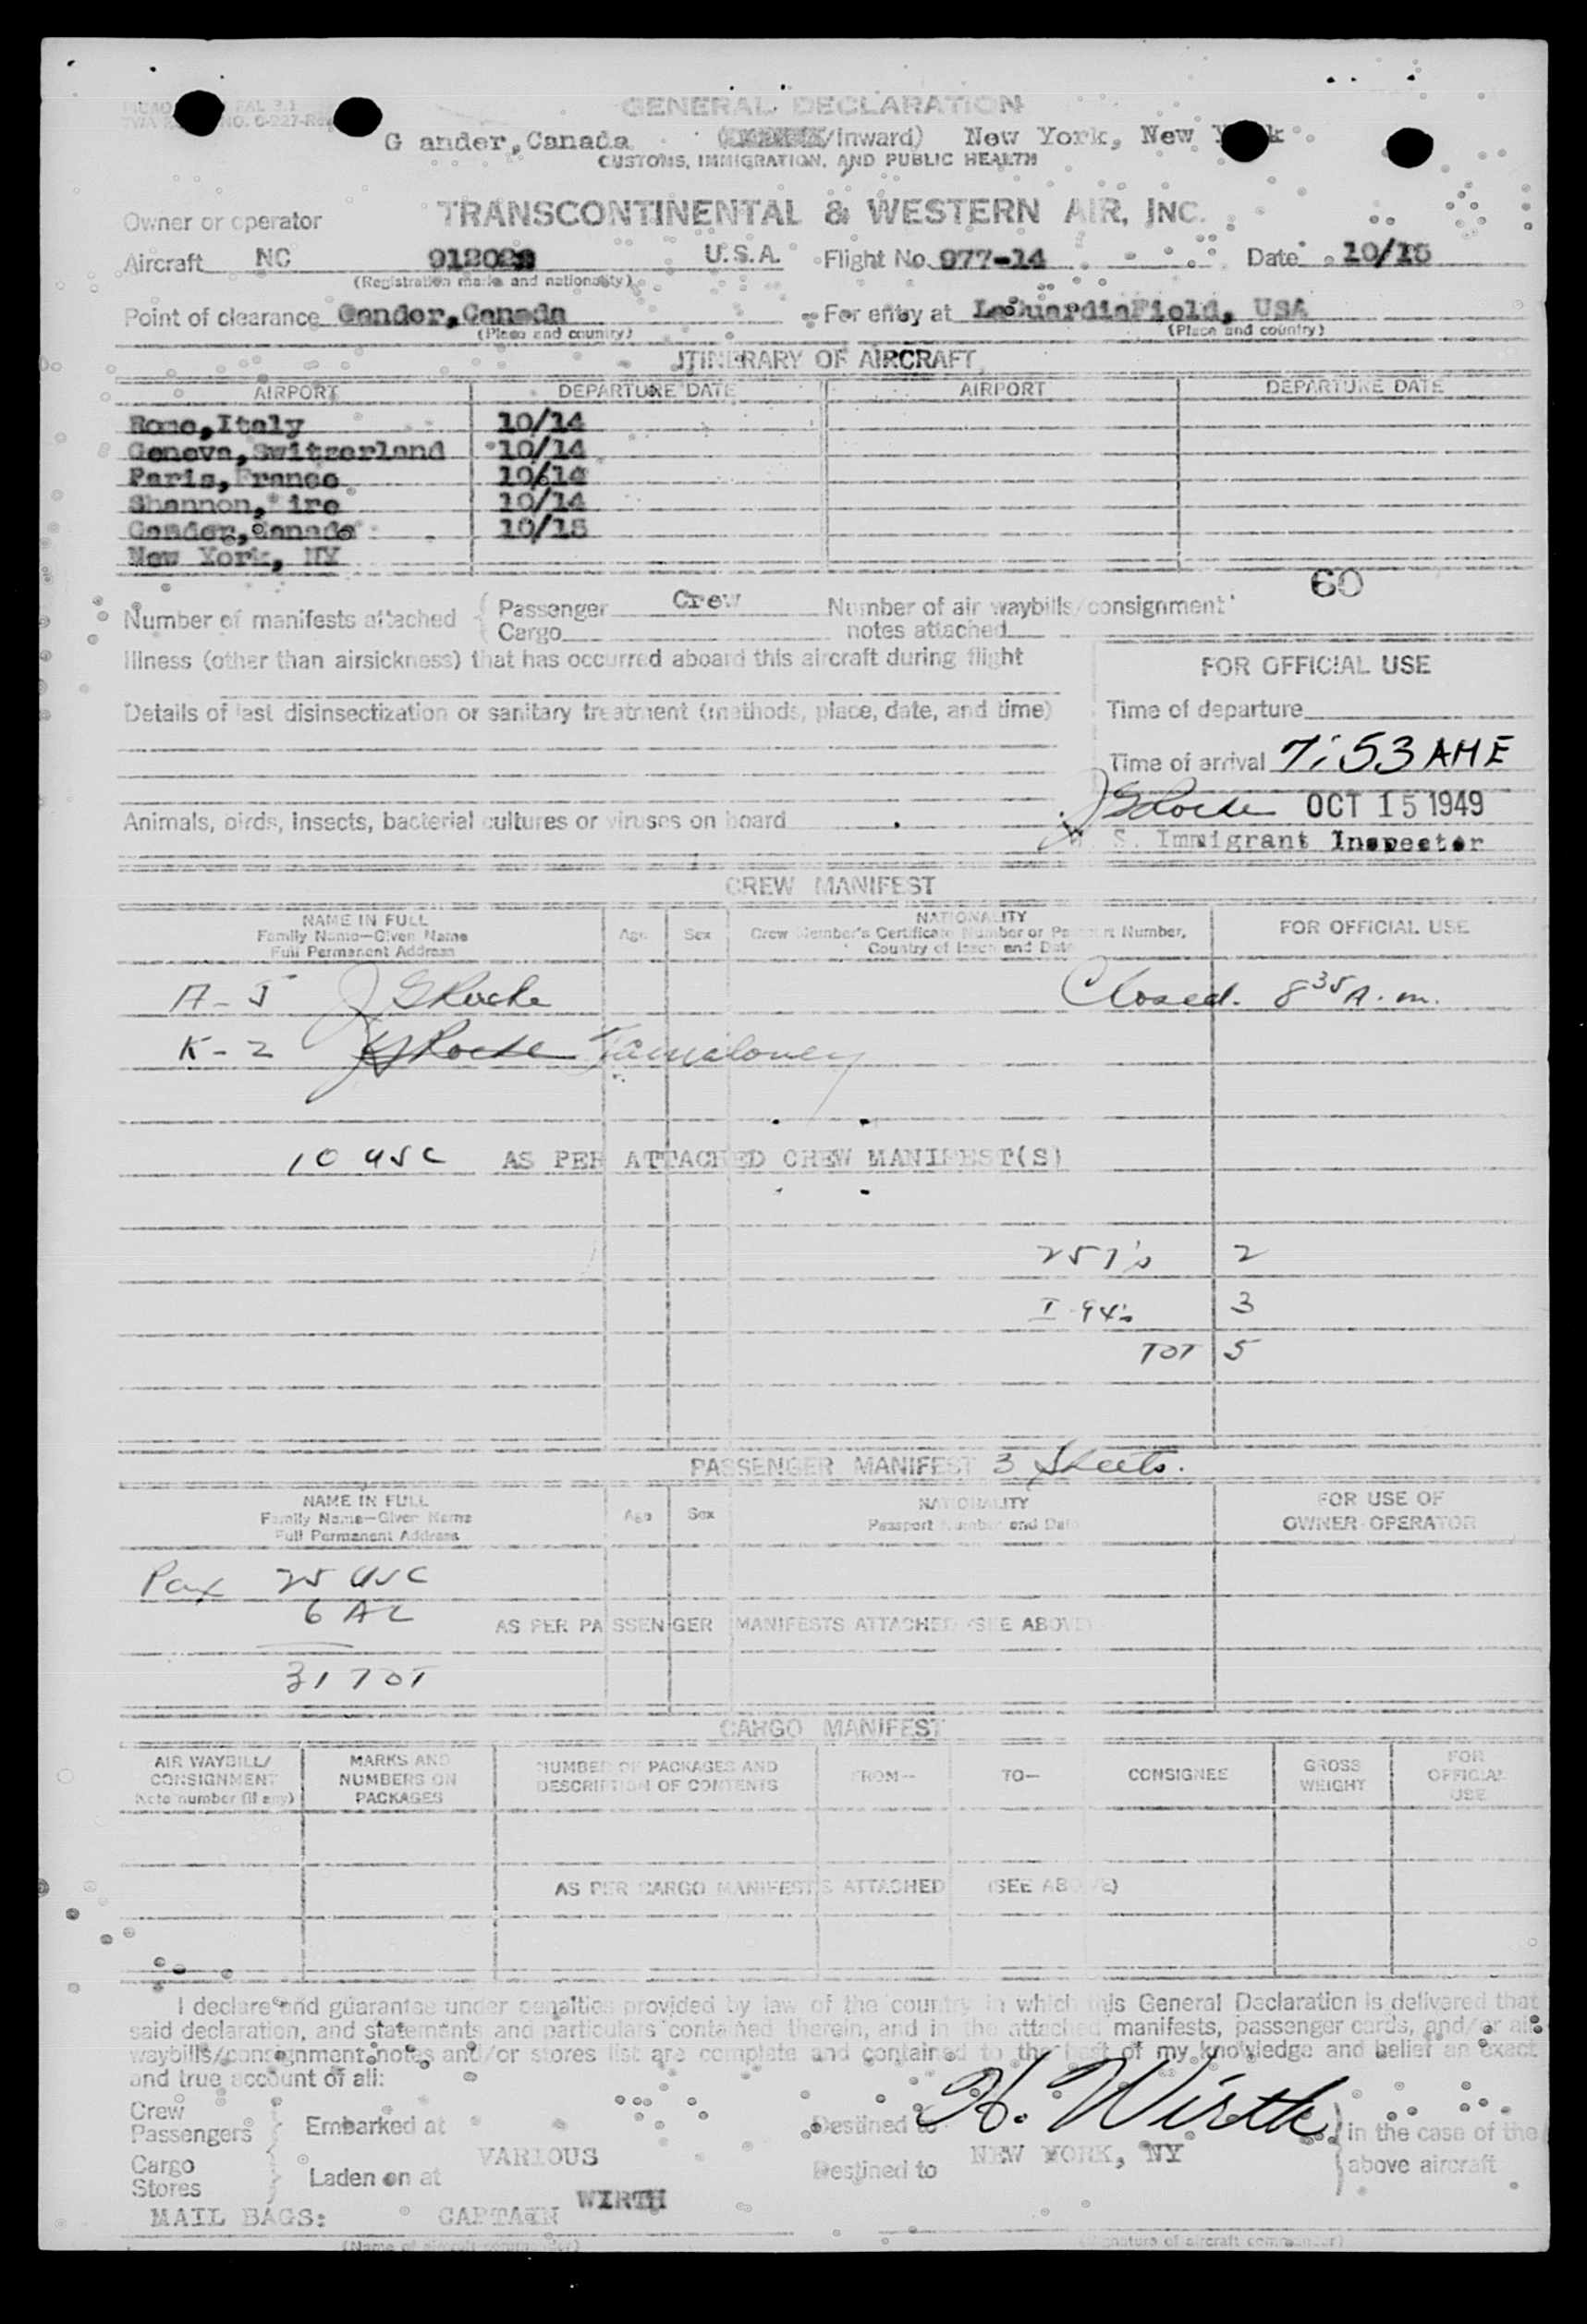 GENERAL DECLARATION
G ander,Canada /inward) New York, New
CUSTOMS, IMMIGRATION, AND PUBLIC HEALTH
Owner or operator TRANSCONTINENTAL & WESTERN AIR, INC.
Aircraft NC U.S.A. Flight No. 977-14 Date 10/15
(Registration marks and nationality)
Point of clearance Gander,Canada For entry at LaGuardiaField, USA
(Place and country) (Place and country)
ITINERARY OF AIRCRAFT
AIRPORT DEPARTURE DATE AIRPORT DEPARTURE DATE
Rome,Italy 10/14
Geneva,Switzerland 10/14
Paris,France 10/14
Shannon, ire 10/14
Gander,Canada 10/15
New York, NY
60
Number of manifests attached { Passenger Crew Number of air waybills/consignment
Cargo notes attached
Illness (other than airsickness) that has occurred aboard this aircraft during flight
FOR OFFICIAL USE
Details of last disinsectization or sanitary treatment (methods, place, date, and time)
Time of departure
Time of arrival 7:53 AM E
JGRoche OCT 15 1949
Animals, birds, insects, bacterial cultures or viruses on board
S. Immigrant Inspector
CREW MANIFEST
NAME IN FULL Age Sex NATIONALITY FOR OFFICIAL USE
Family Name—Given Name Crew Member's Certificate Number or Passport Number,
Full Permanent Address Country of Issue and Date
A-5 JGRoche Closed. 8 35 A.m.
K-2 JGRoche
10 USC AS PER ATTACHED CREW MANIFEST(S)
257's 2
I-94's 3
TOT 5
PASSENGER MANIFEST 3 Sheets.
NAME IN FULL Age Sex NATIONALITY FOR USE OF
Family Name—Given Name Passport Number and Date OWNER-OPERATOR
Full Permanent Address
Pax 25 USC
6 AL
AS PER PASSENGER MANIFESTS ATTACHED (SEE ABOVE)
31 TOT
CARGO MANIFEST
AIR WAYBILL/ MARKS AND NUMBER OF PACKAGES AND FROM— TO— CONSIGNEE GROSS FOR
CONSIGNMENT NUMBERS ON DESCRIPTION OF CONTENTS WEIGHT OFFICIAL
Note number (if any) PACKAGES USE
AS PER CARGO MANIFESTS ATTACHED (SEE ABOVE)
I declare and guarantee under penalties provided by law of the country in which this General Declaration is delivered that
said declaration, and statements and particulars contained therein, and in the attached manifests, passenger cards, and/or air
waybills/consignment notes and/or stores list are complete and contained to the best of my knowledge and belief an exact
and true account of all:
H. Wirth
Crew
Passengers } Embarked at Destined to in the case of the
VARIOUS NEW YORK, NY
Cargo
Stores } Laden on at Destined to above aircraft
MAIL BAGS: CAPTAIN WIRTH
(Name of aircraft commander) (Signature of aircraft commander)